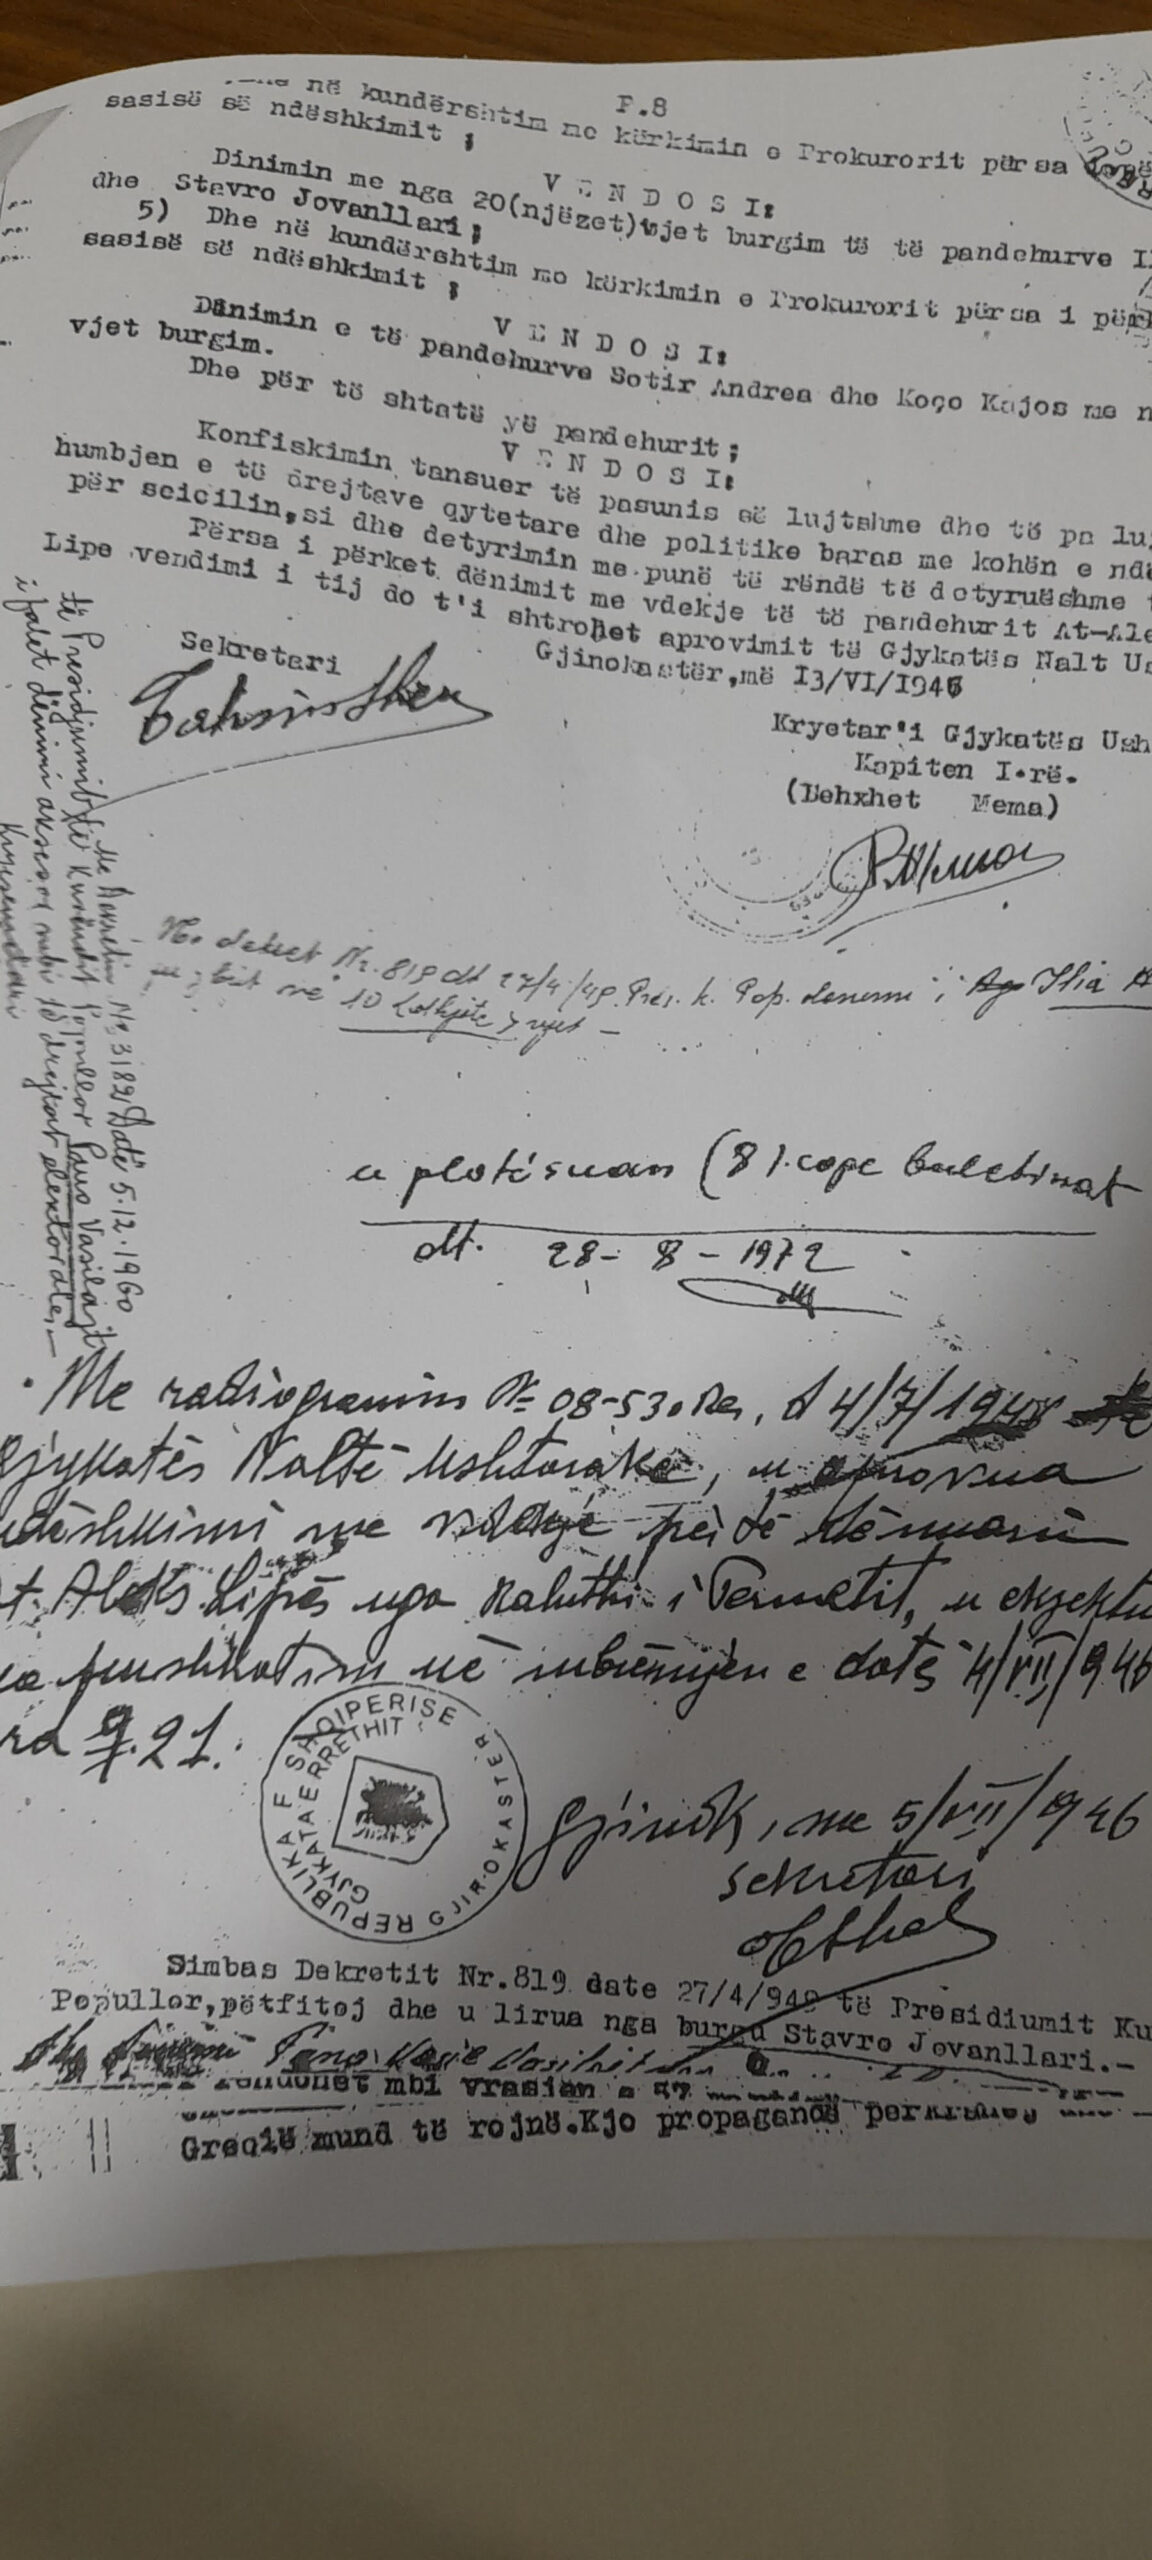 P.8
në kundërshtim me kërkimin e Prokurorit përsa
sasisë së ndëshkimit ;
V E N D O S I:
Dinimin me nga 20(njëzet)vjet burgim të të pandehurve
dhe Stavro Jovanllari;
5) Dhe në kundërshtim mo kërkimin e Prokurorit përsa i përk
sasisë së ndëshkimit ;
V E N D O S I:
Dënimin e të pandehurve Sotir Andrea dhe Koço Kajos me n
vjet burgim.
Dhe për të shtatë yë pandehurit;
V E N D O S I:
Konfiskimin tansuer të pasunis së lujtshme dho të pa lu
humbjen e të drejtave qytetare dhe politike baras me kohën e ndë
për scicilin,si dhe detyrimin me punë të rëndë të dotyruëshme
Përsa i përket dënimit me vdekje të të pandehurit At-Ale
Lipe vendimi i tij do t'i shtrohet aprovimit të Gjykatës Nalt Us
Gjinokastër,më I3/VI/I946
Sekretari
Kryetar'i Gjykatës Ush
Kapiten I.rë.
(Behxhet Mema)
Me dekret Nr. 819 dt 27/4/49 Pres. k. Pop. denimi i Ilia
me 10 (dhjete) vjet -
Me Dekretin Nr 3182 Datë 5.12.1960
të Presidiumit të Kuvëndit Popullor Pano Vasilajt
i falet dënimi aksesor mbi të drejtat elektorale,-
Kryesekretari
u plotësuan (8).cope buletinat
dt. 28 - 8 - 1972
Me radiogramin Nr 08-53.Res, d 4/7/1946
Gjykatës Naltë Ushtarake, u aprovua
ndëshkimi me vdekje për të dënuarin
At. Aleks Lipës nga Saluthi i Përmetit, u ekzektu
pushkatim në mbrëmjen e datës 4/VII/946
ora 9.21.
REPUBLIKA E SHQIPERISE
GJYKATA E RRETHIT
GJIROKASTËR
Gjinok, me 5/VII/946
Sekretari
Simbas Dekretit Nr.819 date 27/4/949 të Presidiumit Ku
Popullor,pëtfitoj dhe u lirua nga burgu Stavro Jovanllari.-
mbi vrasjen e
Greqië mund të rojnë.Kjo propagandë